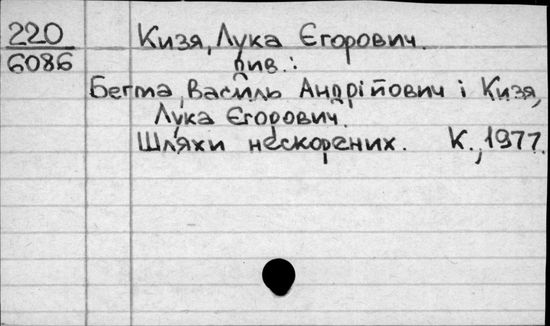 220
6086
Кизя, Лука Єгорович.
див.:
Бегма, Василь Андрійович і Кизя,
Лука Єгорович.
Шляхи нескорених. К., 1977.